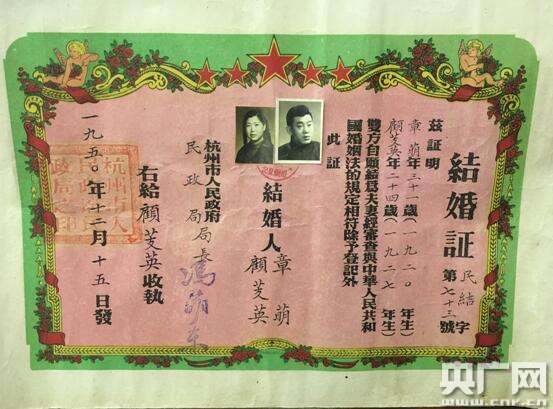 結婚証
民結字
第七十三號
茲証明
章萌年三十一歲(一九二〇年生)
顧芝英年二十四歲(一九二七年生)
雙方自願結爲夫妻經審查與中華人民共和
國婚姻法的規定相符除予登記外
此証
結婚人
章萌
顧芝英
杭州市人民政府
民政局局長
右給顧芝英收執
一九五〇年十二月十五日發
央广网
www.cnr.cn